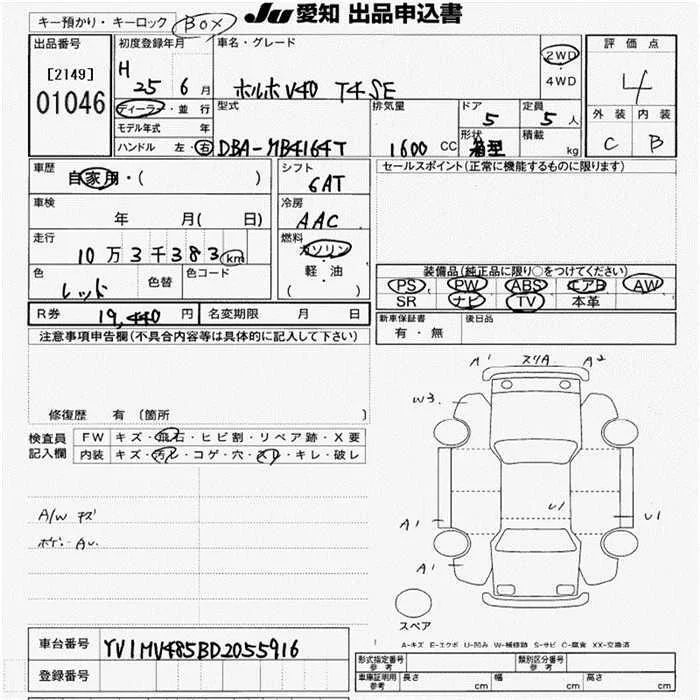 キー預かり・キーロック BOX
JU 愛知 出品申込書
出品番号
[2149]
01046
初度登録年月
H 25 6 月
ディーラー・並 行
モデル年式 年
ハンドル 左・右
車名・グレード
ボルボ V40 T4 SE
2WD
・
4WD
評 価 点
4
外 装 内 装
C B
型式
DBA-MB4164T
排気量
1600 CC
ドア
5
定員
5 人
形状
箱型
積載
kg
車歴
自家用・( )
車検
年 月( 日)
走行
10 万 3 千 3 8 3 km
色
レッド
色替
色コード
シフト
6AT
冷房
AAC
燃料
ガソリン
・
軽・油
( )
セールスポイント(正常に機能するものに限ります)
装備品(純正品に限り○をつけてください)
PS PW ABS エアB AW
SR ナビ TV 本革
R券 19,440 円
名変期限 月 日
新車保証書
有・無
後日品
注意事項申告欄(不具合内容等は具体的に記入して下さい)
修復歴 有 〔箇所 〕
検査員
記入欄
FW キズ・飛石・ヒビ割・リペア跡・X要
内装 キズ・汚レ・コゲ・穴・スレ・キレ・破レ
A/W キズ
ボデー AU.
A1 スリA A2
W3
U1
A1 U1
A1
スペア
A-キズ E-エクボ U-凹み W-補修跡 S-サビ C-腐食 XX-交換済
車台番号 YV1MV485BD2055916
登録番号
形式指定番号
参 考
類別区分番号
参 考
車庫証明用
参考
長さ cm 幅 cm 高さ cm